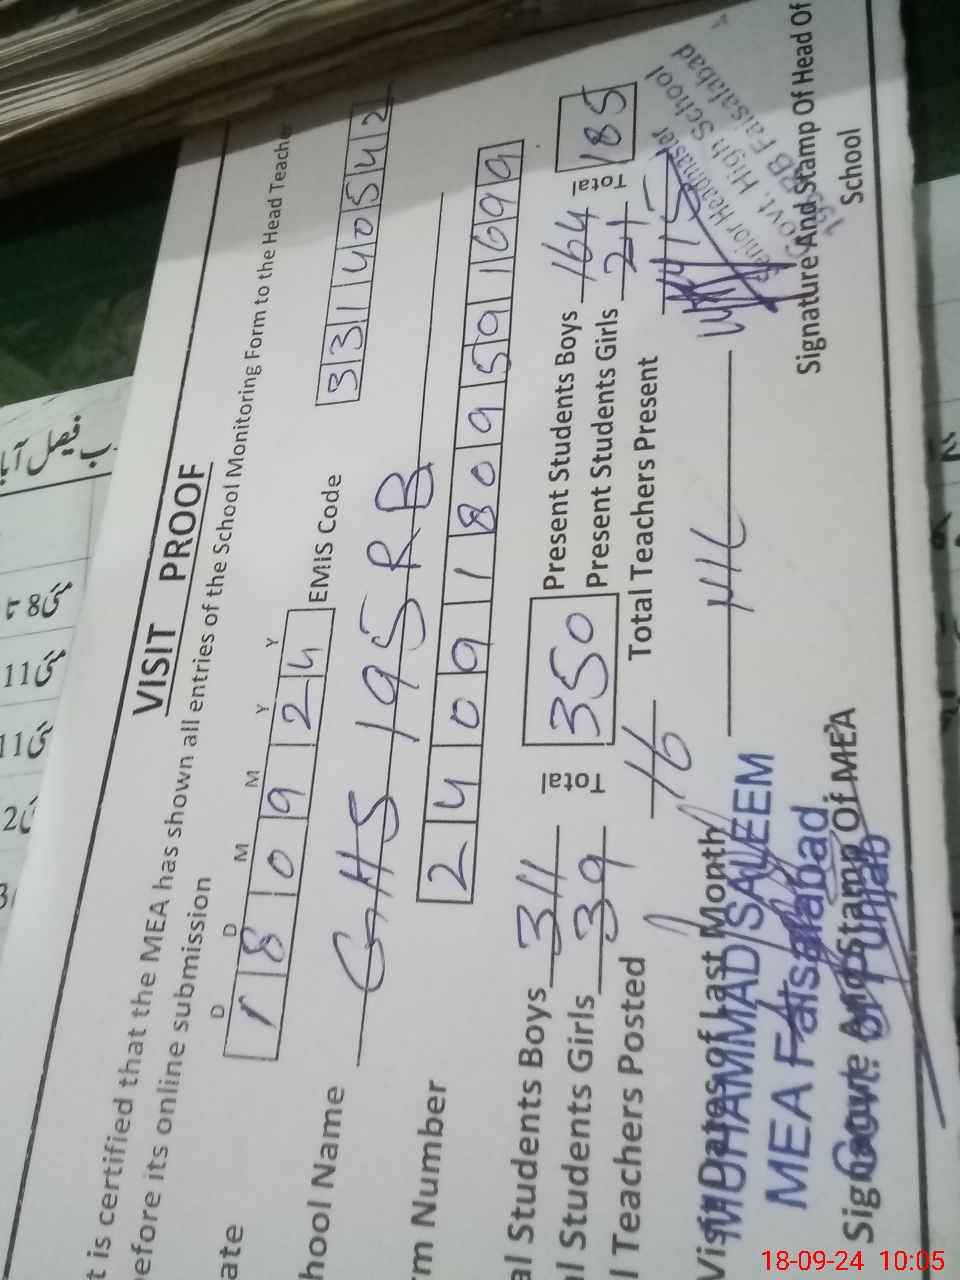 VISIT PROOF
t is certified that the MEA has shown all entries of the School Monitoring Form to the Head Teacher
efore its online submission
D D M M Y Y
ate 1 8 0 9 2 4 EMIS Code 3 3 1 4 0 5 4 2
hool Name GHS 195 RB
rm Number 2 4 0 9 1 8 0 9 5 9 1 6 9 9
al Students Boys 311 Total 350 Present Students Boys 164 Total 185
l Students Girls 39 Present Students Girls 21
l Teachers Posted 16 Total Teachers Present 15
Visit Dates of Last Month Nil
MUHAMMAD SALEEM
MEA Faisalabad
Govt. of Punjab
Signature And Stamp Of MEA
Senior Headmaster
Govt. High School
195 RB Faisalabad
Signature And Stamp Of Head Of
School
18-09-24 10:05